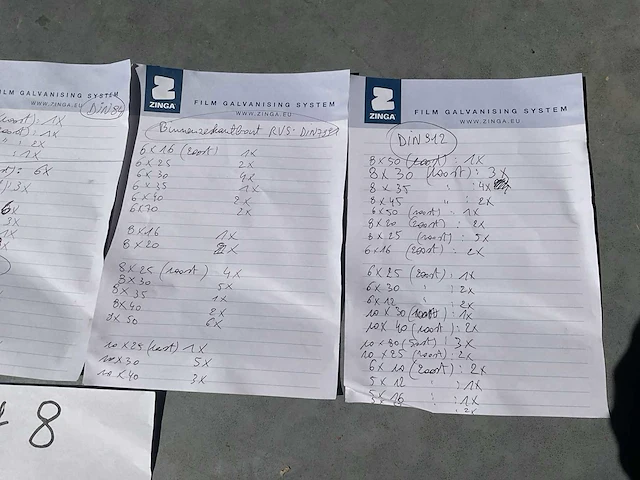 FILM GALVANISING SYSTEM
WWW.ZINGA.EU
: 1X
: 1X
: 2X
: 1X
: 6X
: 3X
6X
3X
1X
3X
ZINGA
FILM GALVANISING SYSTEM
WWW.ZINGA.EU
Binnenzeskantbout RVS: DIN
6 X 16 (roost) 1X
6 X 25 2X
6 X 30 4X
6 X 35 1X
6 X 40 2X
6 X 70 2X
8 X 16 1X
8 X 20 2X
8 X 25 (roost) 4X
8 X 30 5X
8 X 35 1X
8 X 40 2X
8 X 50 6X
10 X 25 (roost) 1X
10 X 30 5X
10 X 40 3X
ZINGA
FILM GALVANISING SYSTEM
WWW.ZINGA.EU
DIN 912
8 X 50 (roost) : 1X
8 X 30 (roost) : 3X
8 X 35 " : 4X
8 X 45 " : 2X
6 X 50 (roost) : 1X
8 X 20 (roost) : 2X
8 X 25 (roost) : 5X
6 X 16 (roost) : 2X
6 X 25 (roost) : 1X
6 X 30 " : 2X
6 X 12 " : 2X
10 X 30 (roost) : 1X
10 X 40 (roost) : 2X
10 X 80 (roost) : 3X
10 X 25 (roost) : 2X
6 X 10 (roost) : 2X
5 X 12 " : 1X
5 X 16 " : 1X
: 2X
8